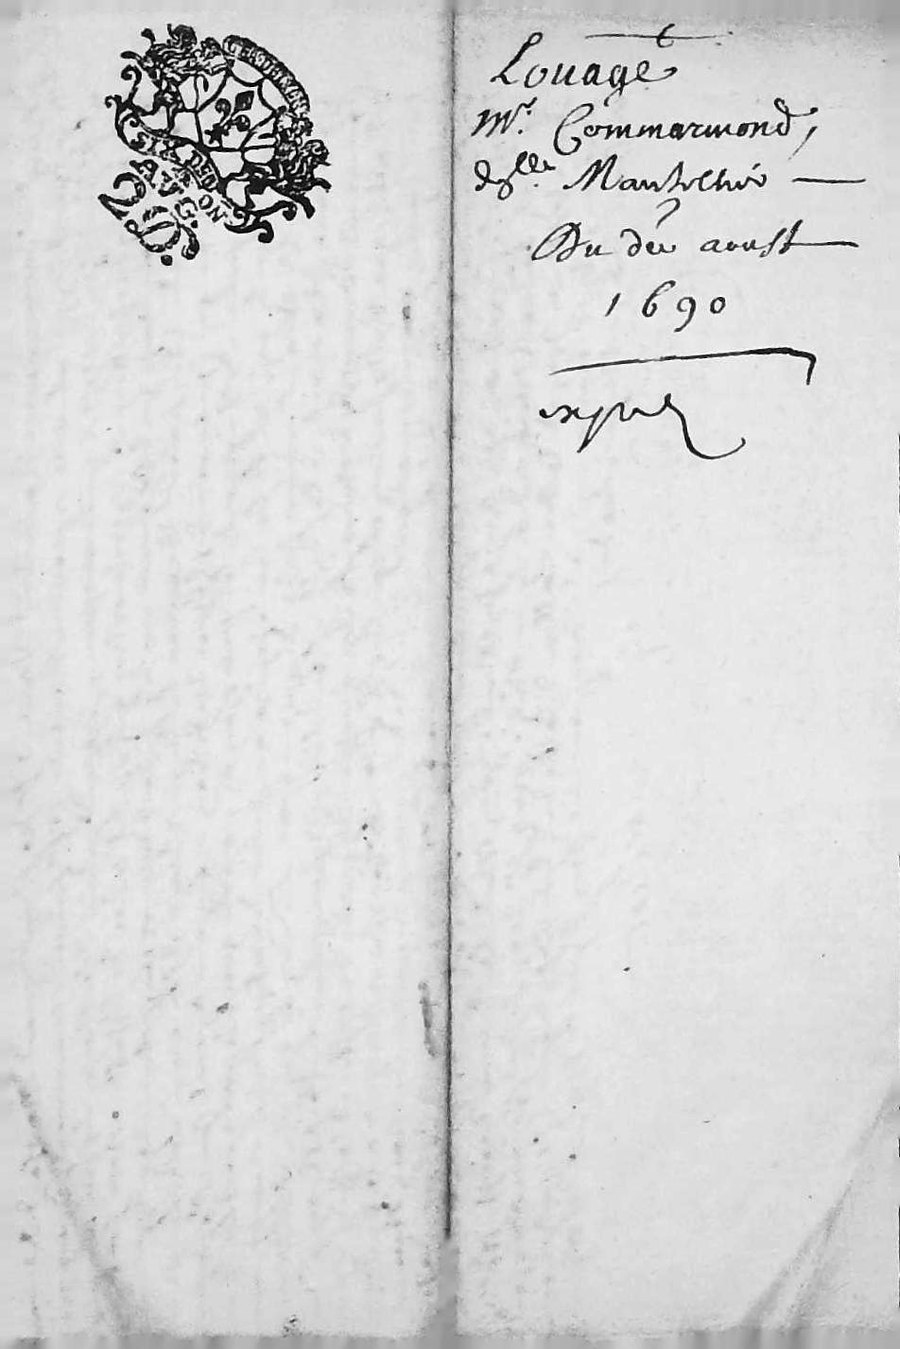 SIX DED
A ON
AVG.
2 S.
Louage
Mr. Commarmond,
dlle. Manteliei
Du de aoust
1690
expé